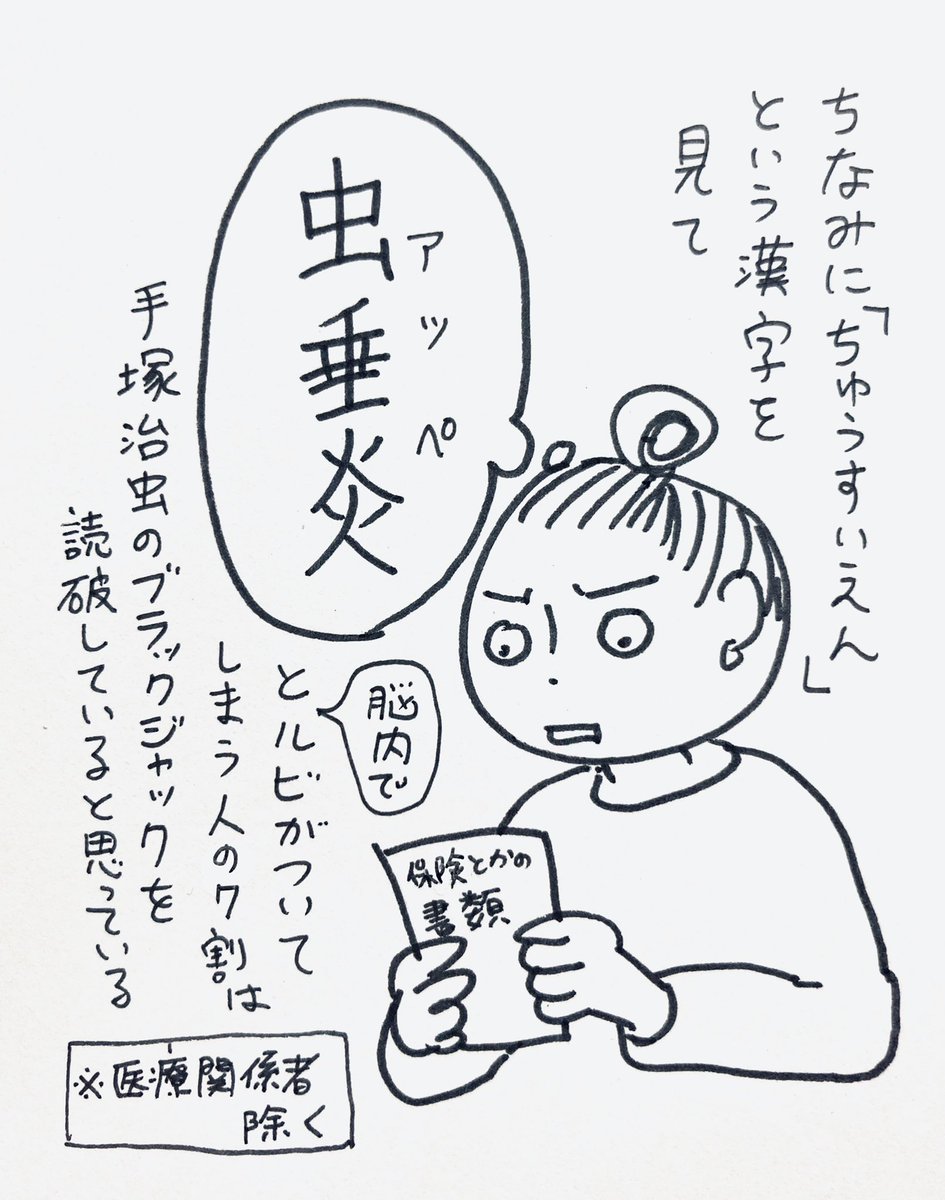 ちなみに「ちゅうすいえん」
という漢字を
見て
アッペ
虫垂炎
脳内で
とルビがついて
しまう人の7割は
手塚治虫のブラックジャックを
読破していると思っている
保険とかの
書類
※医療関係者
除く